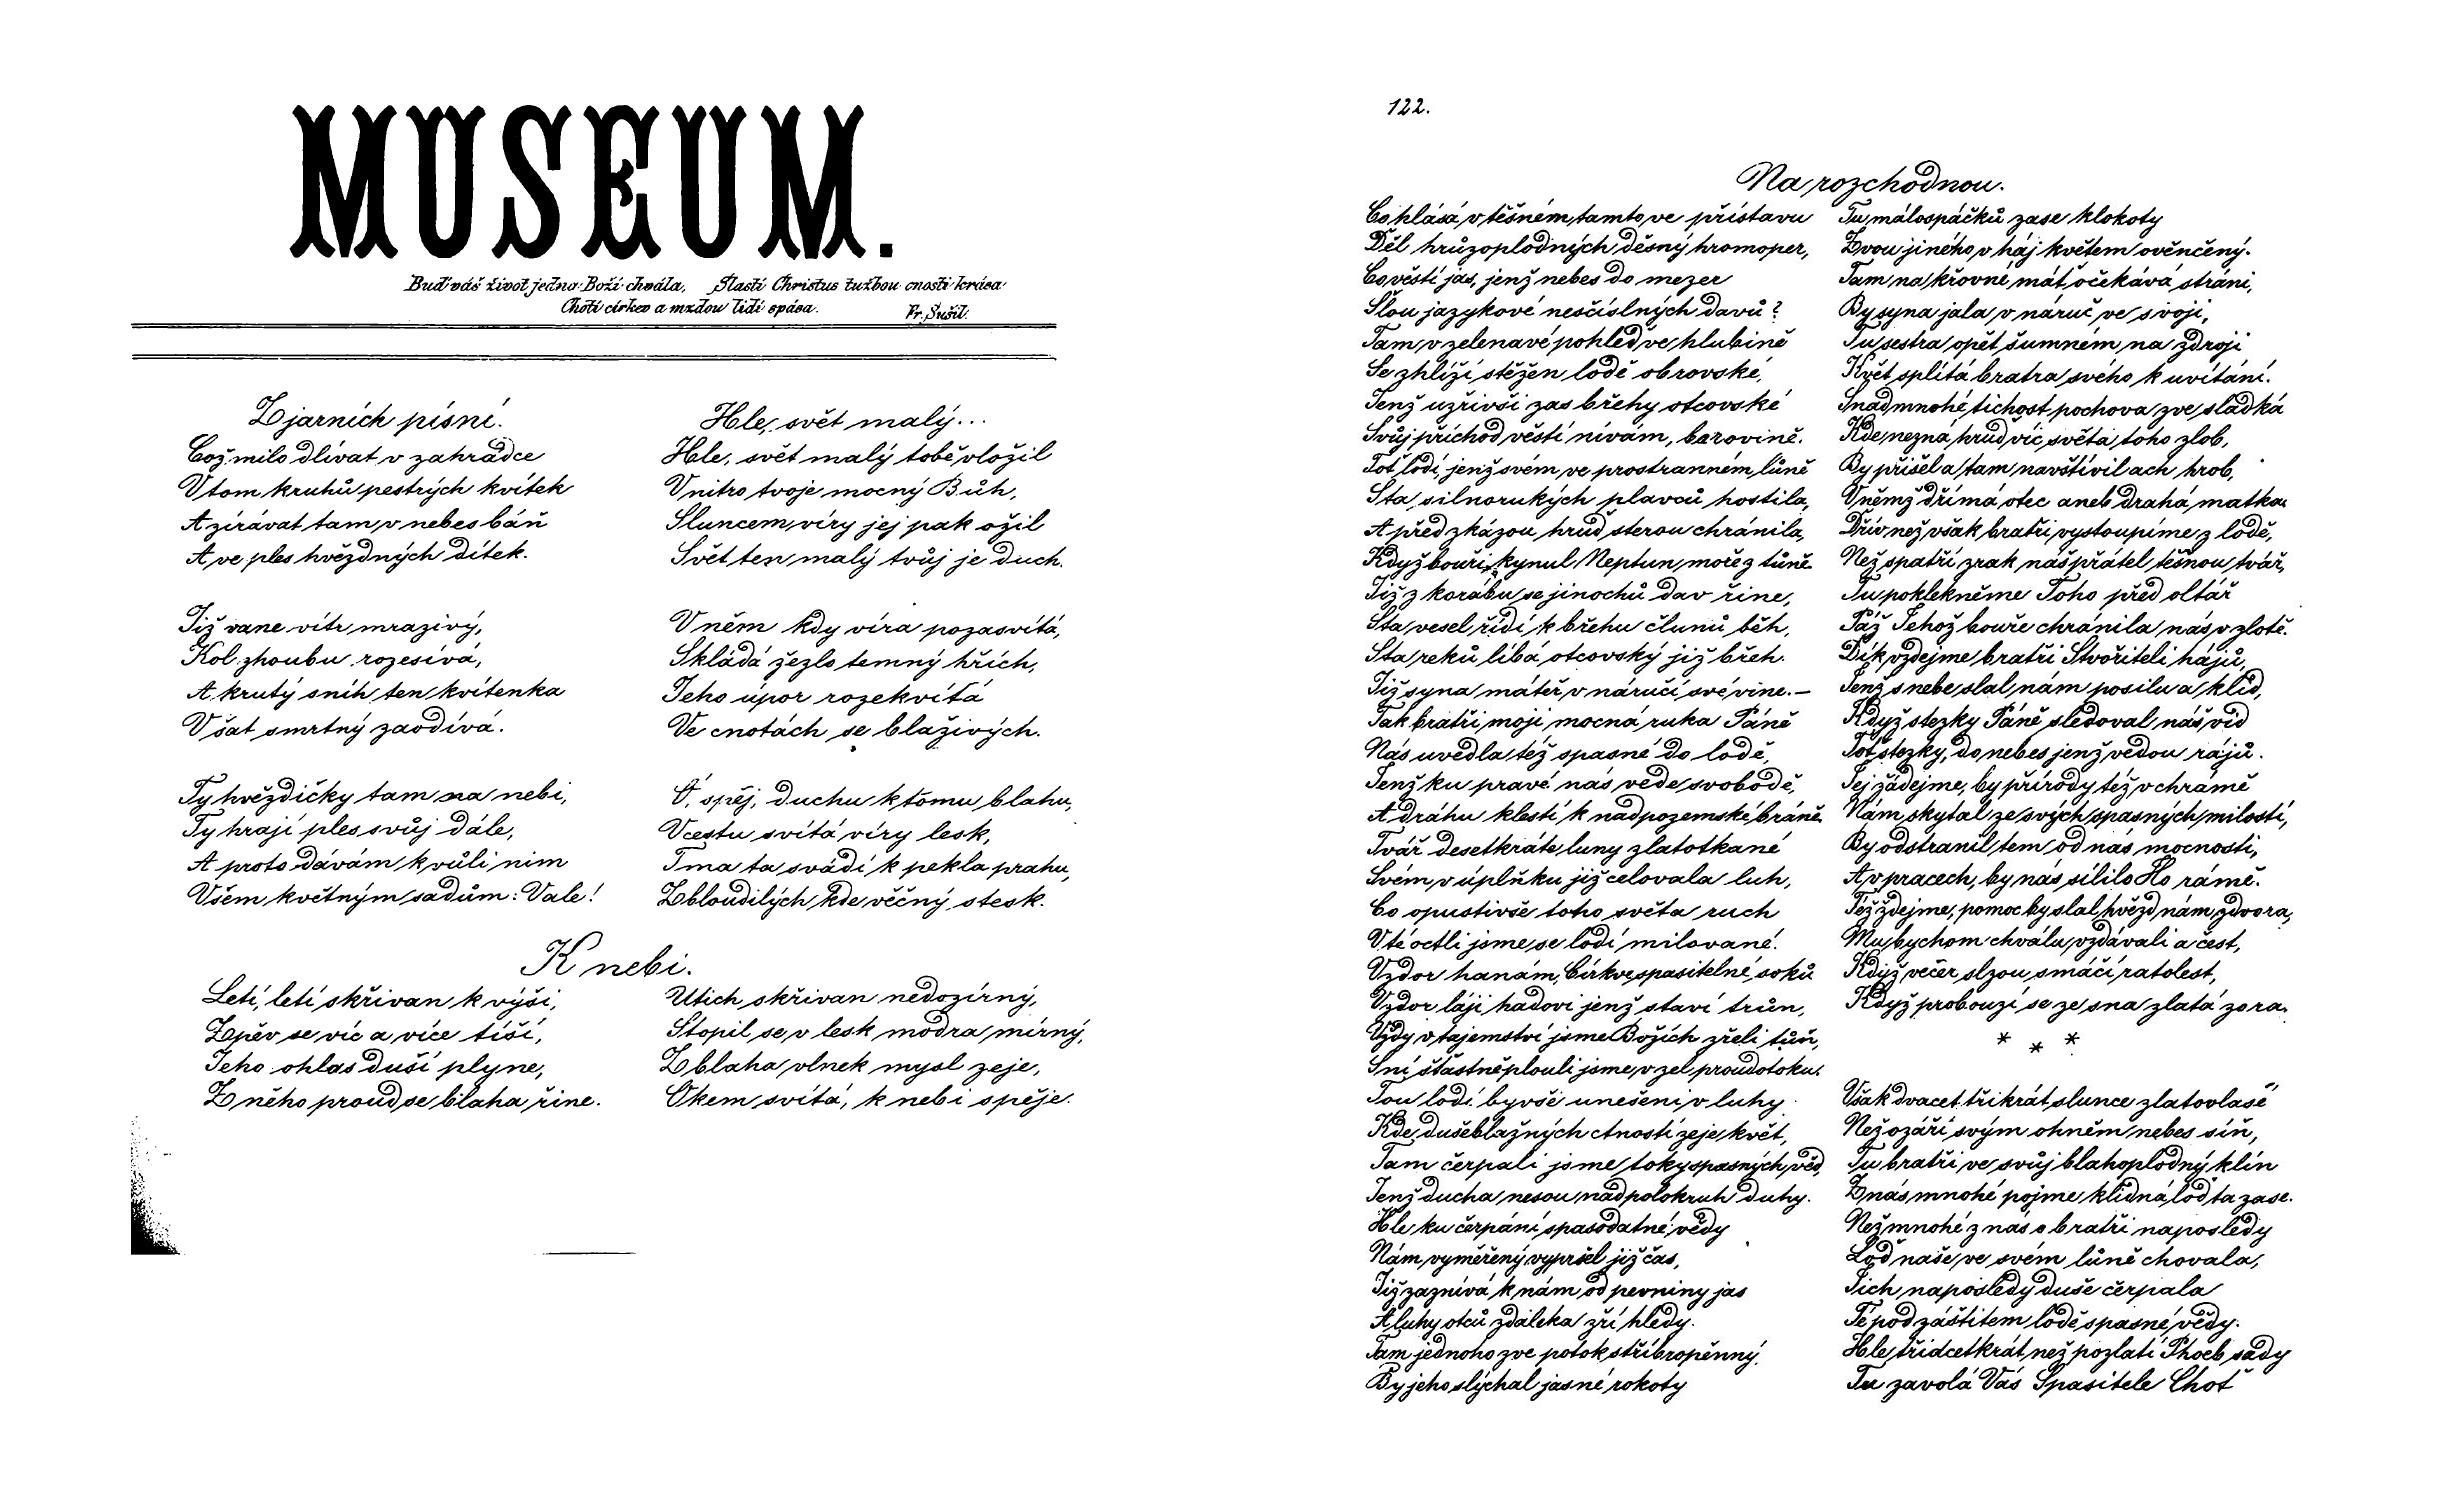 MUSEUM.
Buď váš život jedno: Boží chvála, Slastí Christus tužbou cnosti krása
Chotí církev a mzdou lidí spása.
Fr. Sušil.
Z jarních písní.
Což milo dlívat v zahrádce
V tom kruhů pestrých kvítek
A zírávat tam v nebes báň
A ve ples hvězdných dítek.
Již vane vítr mrazivý,
Kol zhoubu rozesívá,
A krutý sníh ten kvítenka
V šat smrtný zaodívá.
Ty hvězdičky tam na nebi,
Ty hrají ples svůj dále,
A proto dávám k vůli nim
Všem květným sadům: Vale!
Hle, svět malý...
Hle, svět malý tobě vložil
V nitro tvoje mocný Bůh,
Sluncem víry jej pak ožil
Svět ten malý tvůj je duch.
V něm kdy víra pozasvítá,
Skládá žezlo temný hřích,
Jeho úpor rozekvítá
Ve cnotách se blaživých.
Ó, spěj, duchu k tomu blahu,
V cestu svítá víry lesk,
Tma ta svádí k pekla prahu,
Zbloudilých kde věčný stesk.
K nebi.
Letí, letí skřivan k výši,
Zpěv se víc a více tiší,
Jeho ohlas duší plyne,
Z něho proud se blaha řine.
Utich skřivan nedozírný,
Stopil se v lesk modra mírný,
Z blaha vlnek mysl zeje,
Okem svítá, k nebi spěje.
122.
Na rozchodnou.
Co hlásá v těsném tamto ve přístavu
Děl hrůzoplodných děsný hromoper,
Co věstí jas, jenž nebes do mezer
Slou jazykové nesčíslných davů?
Tam v zelenavé pohleď ve hlubině
Se zhlíží stěžen lodě obrovské,
Jenž uzřivši zas břehy otcovské
Svůj příchod věstí nívám, barovině.
Toť lodí, jenž svém ve prostranném lůně
Sta silnorukých plavců hostila,
A před zkázou hruď sterou chránila,
Když bouři kynul Neptun, moře z tůně
Již z korábu se jinochů dav řine,
Sta vesel řídí k břehu člunů běh,
Sta reků líbá otcovský již břeh.
Již syna máteř v náručí své vine. —
Tak bratři moji mocná ruka Páně
Nás uvedla též spasné do lodě,
Jenž ku pravé nás vede svobodě,
A dráhu klestí k nadpozemské bráně.
Tvář desetkráte luny zlatotkané
Svém v úplňku již celovala luh,
Co opustivše toho světa ruch
V té octli jsme se lodí milované.
Vzdor hanám, Církve spasitelné soků
Vzdor láji hadovi jenž staví trůn,
Vždy v tajemství jsme Božích zřeli tůň,
S ní šťastně plouli jsme v zel proudotoku.
Tou lodí byvše unešeni v luhy
Kde dušeblažných ctností zeje květ,
Tam čerpali jsme toky spasných věd,
Jenž ducha nesou nad polokruh duhy.
Hle ku čerpání spasodatné vědy
Nám vyměřený vypršel již čas,
Již zaznívá k nám od pevniny jas
A luhy otců zdaleka zří hledy.
Tam jednoho zve potok stříbropěnný,
By jeho slýchal jasné rokoty
Tu málospáčků zase klokoty
Zvou jiného v háj květem ověnčený.
Tam na křovné máť očekává stráni,
By syna jala v náruč ve svoji,
Tu sestra opět šumném na zdroji
Květ splítá bratra svého k uvítání.
Snad mnohé tichost pochova zve sladká
Kde nezná hruď víc světa toho zlob,
By přišel a tam navštívil ach hrob,
V němž dřímá otec aneb drahá matka.
Dřív než však bratři vystoupíme z lodě,
Než spatří zrak náš přátel těsnou tvář,
Tu poklekněme Toho před oltář
Páž Jehož bouře chránila nás v zlotě.
Dík vzdejme bratři Stvořiteli hájů,
Jenž s nebe slal nám posilu a klid,
Když stezky Páně sledoval náš vid
Toť stezky, do nebes jenž vedou rájů.
Jej žádejme, by přírody též v chrámě
Nám skytal ze svých spasných milostí,
By odstranil tem od nás mocnosti,
A v pracech, by nás sílilo Ho rámě.
Též ždejme, pomoc by slal hvězd nám z dvora,
Mu bychom chválu vzdávali a čest,
Když večer slzou smáčí ratolest,
Když probouzí se ze sna zlatá zora.
* * *
Však dvacet třikrát slunce zlatovlasé
Než ozáří svým ohněm nebes síň,
Tu bratři ve svůj blahoplodný klín
Z nás mnohé pojme klidná loď ta zase.
Než mnohé z nás o bratři naposledy
Loď naše ve svém lůně chovala,
Jich naposledy duše čerpala
Té pod záštitem lodě spasné vědy.
Hle třidcetkrát než pozlatí Phoeb sady
Tu zavolá Vás Spasitele Choť